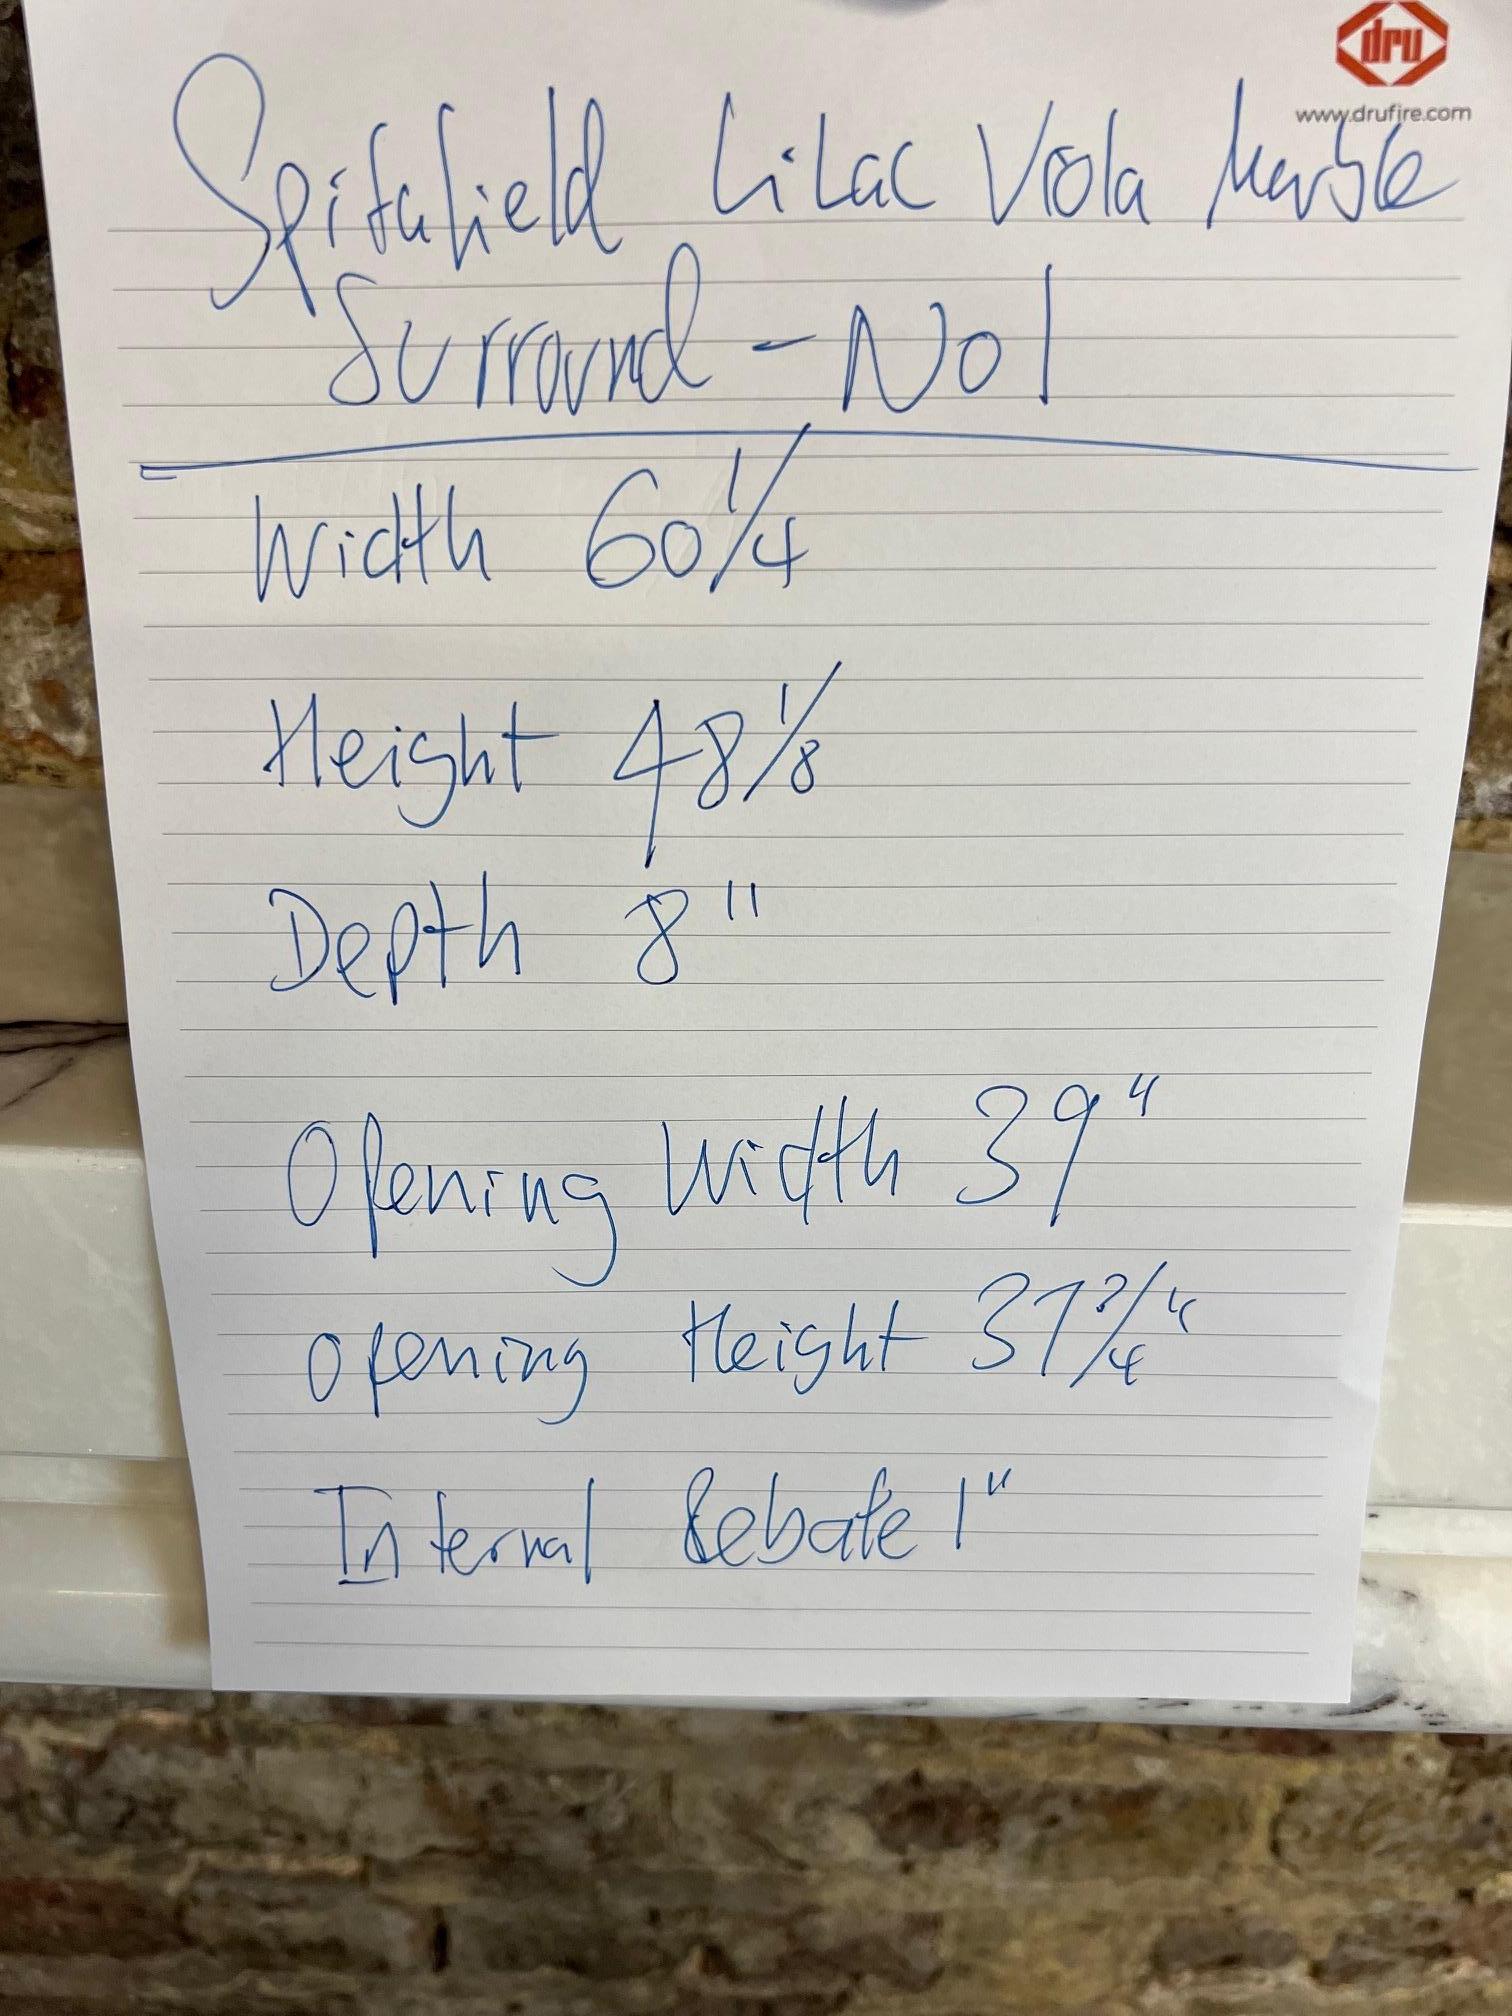 dru
www.drufire.com
Spitafield Lilac Viola Marble
Surround - No 1
Width 60 1/4
Height 48 1/8
Depth 8"
Opening Width 39"
Opening Height 37 3/4"
Internal Rebate 1"